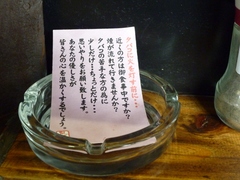 タバコに火を灯す前に…
近くの方は御食事中ですか?
煙が流れて行きませんか?
タバコの苦手な方の為に
少しだけ…ちょっとだけ…
思いやりをお願い致します。
あなたの優しさが
皆さんの心を温かくするでしょう。